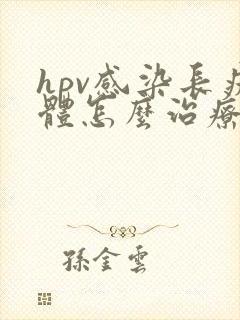 hpv感染長疣
體怎麼治療
孫金雲